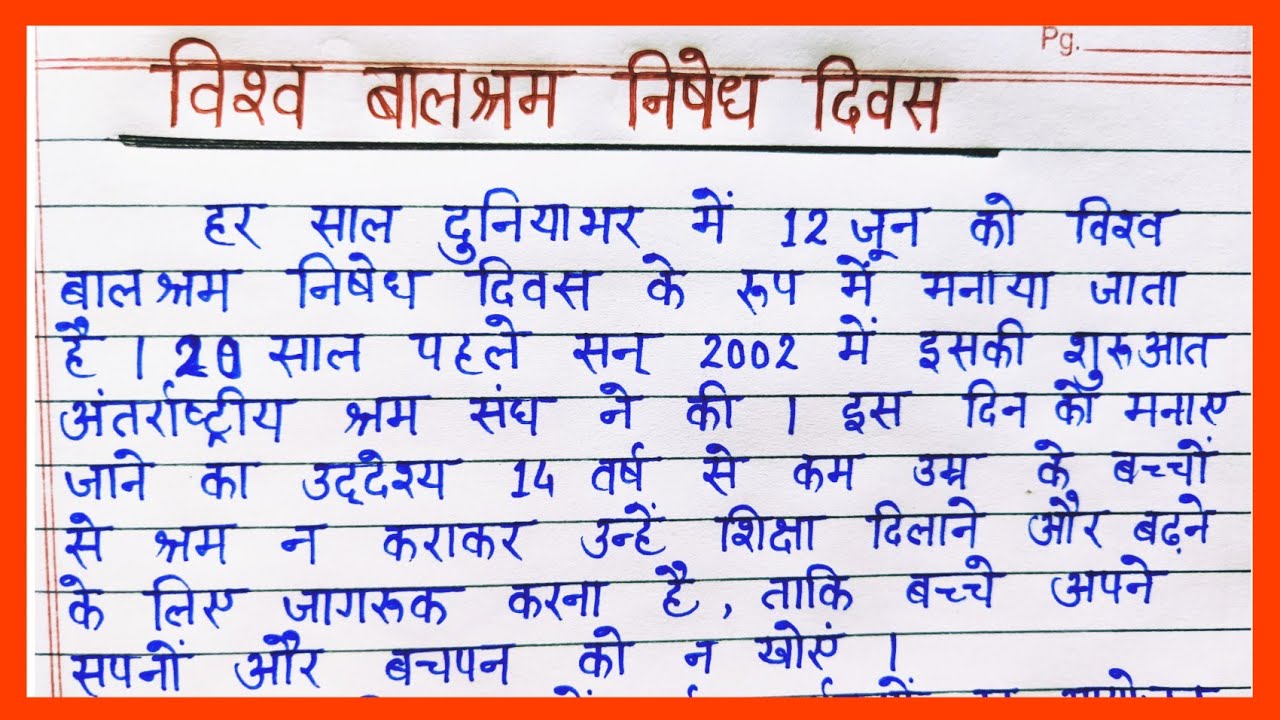 Pg.
विश्व बालश्रम निषेध दिवस
हर साल दुनियाभर में 12 जून को विश्व
बालश्रम निषेध दिवस के रूप में मनाया जाता
है । 20 साल पहले सन् 2002 में इसकी शुरूआत
अंतर्राष्ट्रीय श्रम संघ ने की । इस दिन को मनाए
जाने का उद्देश्य 14 वर्ष से कम उम्र के बच्चों
से श्रम न कराकर उन्हें शिक्षा दिलाने और बढ़ने
के लिए जागरूक करना है , ताकि बच्चे अपने
सपनों और बचपन को न खोएं ।